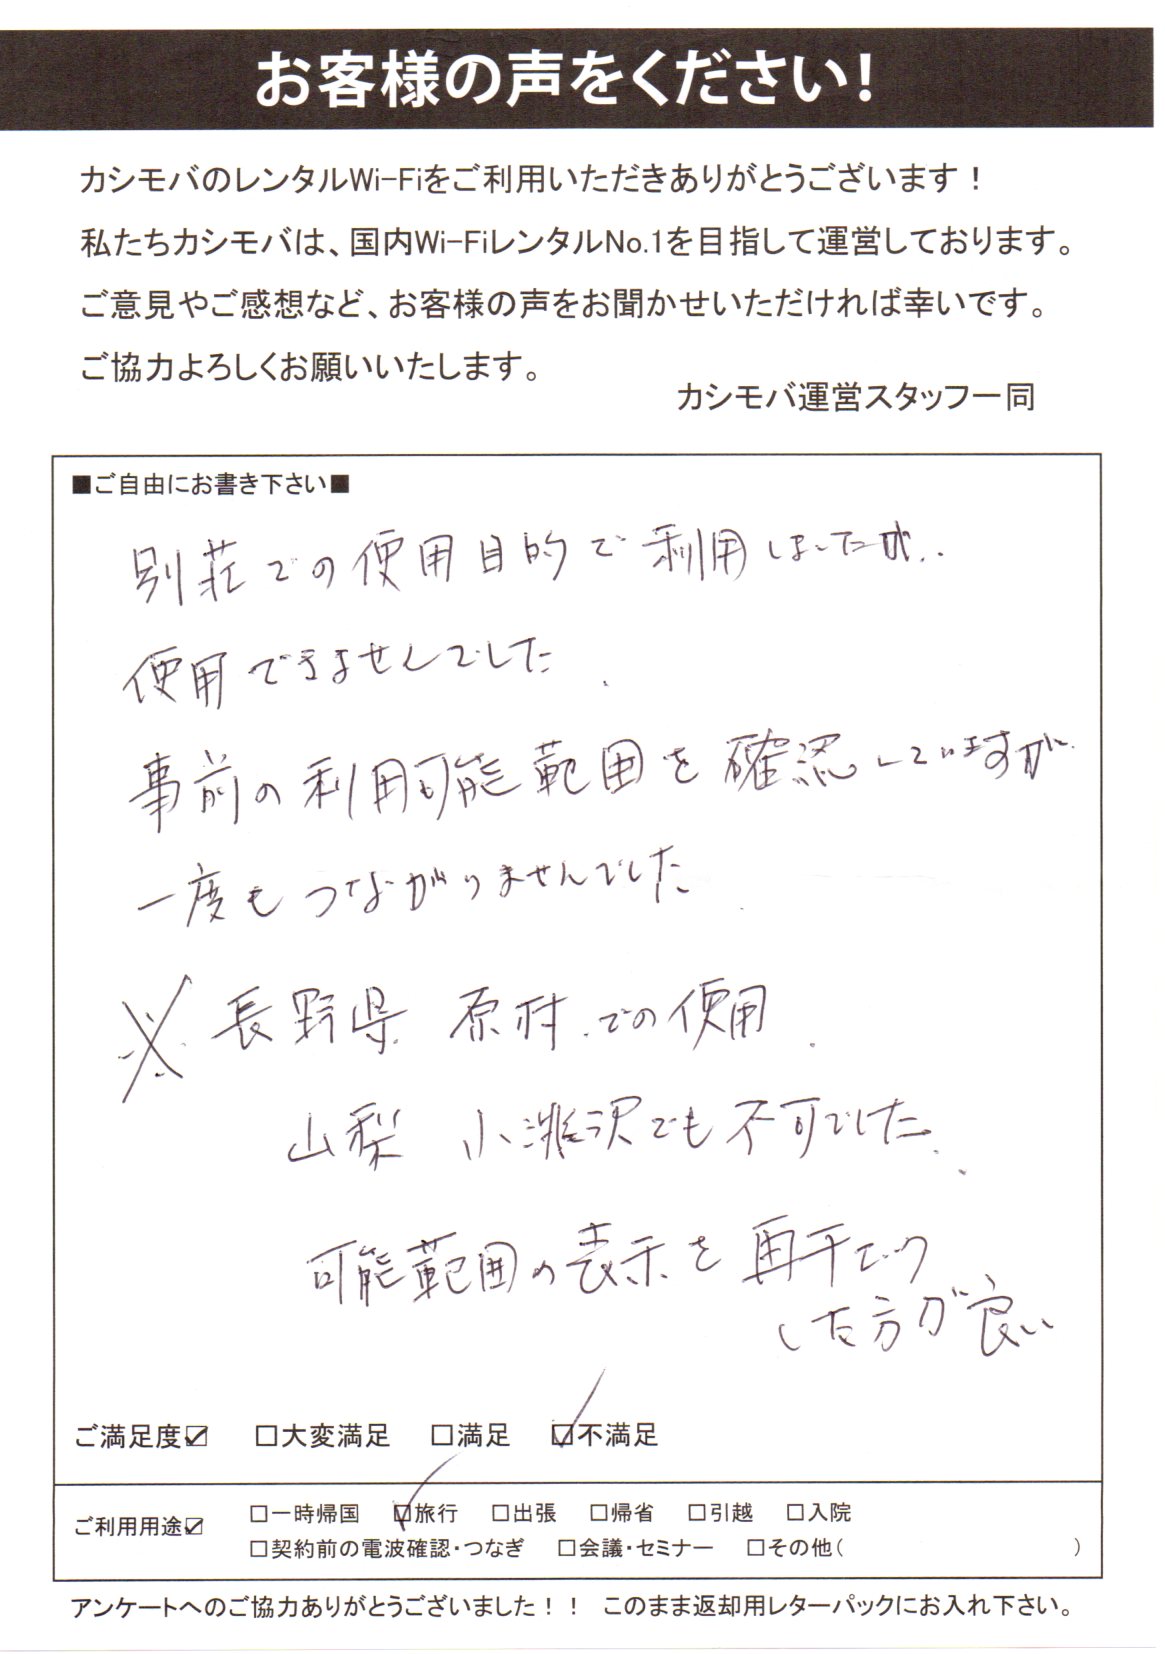 お客様の声をください!
カシモバのレンタルWi-Fiをご利用いただきありがとうございます！
私たちカシモバは、国内Wi-FiレンタルNo.1を目指して運営しております。
ご意見やご感想など、お客様の声をお聞かせいただければ幸いです。
ご協力よろしくお願いいたします。
カシモバ運営スタッフ一同
■ご自由にお書き下さい■
別荘での使用目的で利用しましたが、
使用できませんでした。
事前の利用可能範囲を確認していますが
一度もつながりませんでした。
※長野県 原村での使用。
山梨 小淵沢でも不可でした。
可能範囲の表示を再チェック
した方が良い
ご満足度☑ □大変満足 □満足 ☑不満足
ご利用用途☑ □一時帰国 ☑旅行 □出張 □帰省 □引越 □入院
□契約前の電波確認・つなぎ □会議・セミナー □その他( )
アンケートへのご協力ありがとうございました！！ このまま返却用レターパックにお入れ下さい。